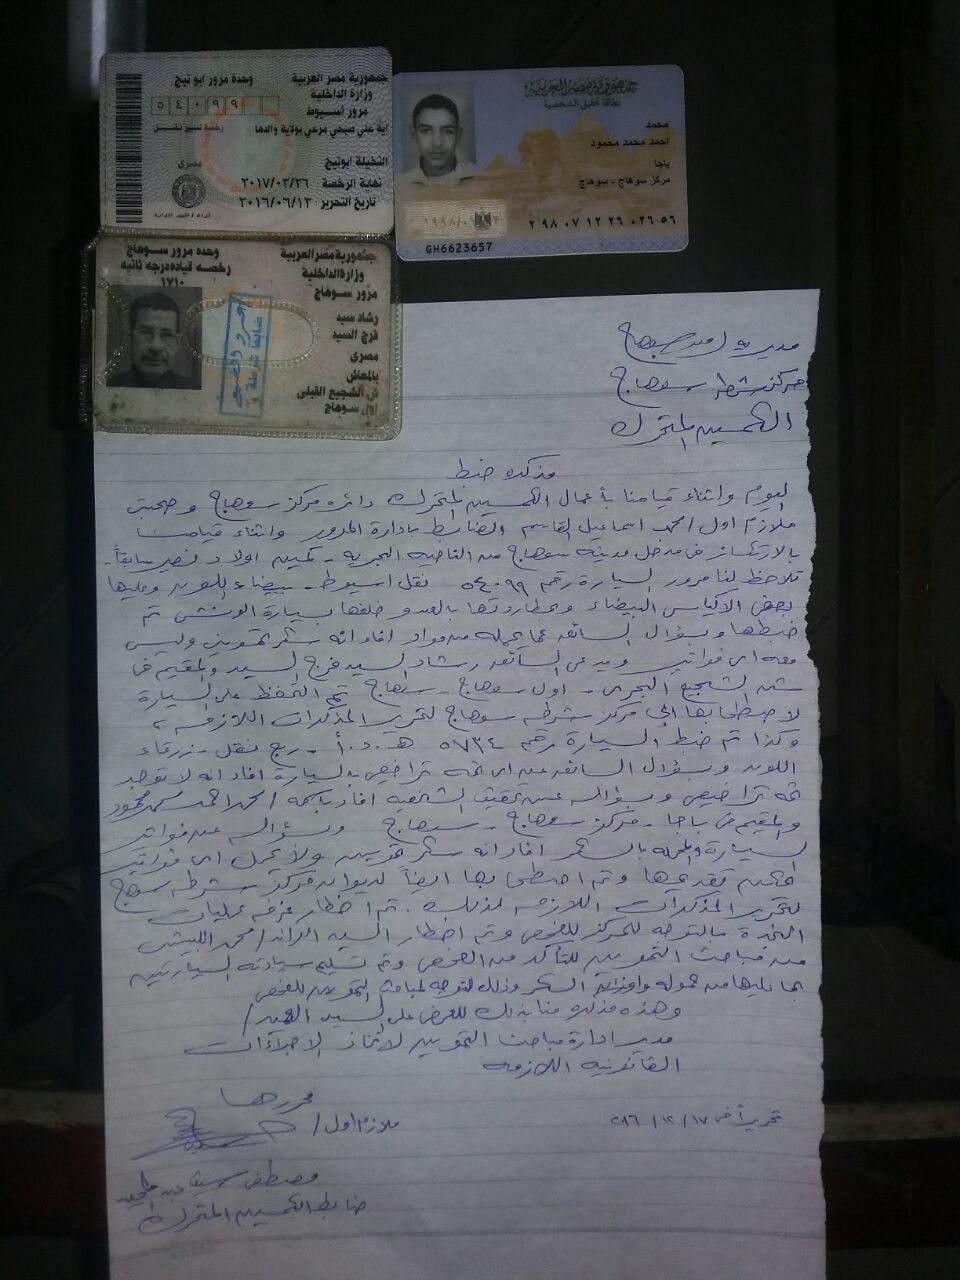 جمهورية مصر العربية
وزارة الداخلية
مرور أسيوط
وحدة مرور ابو تيج
٥٤٠٩٩
رخصة تسيير نقل
اية علي صبحي مرعي بولاية والدها
مصرى
النخيلة ابوتيج
نهاية الرخصة ٢٠١٧/٠٣/٢٦
تاريخ التحرير: ٢٠١٦/٠٦/١٣
جمهورية مصر العربية
بطاقة تحقيق الشخصية
محمد
احمد محمد محمود
باجا
مركز سوهاج - سوهاج
٢ ٩٨ ٠٧ ١٢ ٢٦ ٠٢٦ ٥٦
GH6623657
جمهورية مصر العربية
وزارة الداخلية
مرور سوهاج
وحدة مرور سوهاج
رخصه قياده درجه ثانيه
١٧١٠
رشاد سيد
فرج السيد
مصرى
بالمعاش
ش الشجيع القبلى
اول سوهاج
مديرية أمن سوهاج
مركز شرطة سوهاج
الكمين المتحرك
مذكره ضبط
اليوم واثناء قيامنا بأعمال الكمين المتحرك دائره مركز سوهاج وصحبت
ملازم اول / محمد اسماعيل القاسم الضابط بادارة المرور واثناء قيامنا
بالارتكاز فى مدخل مدينة سوهاج من الناحيه البحريه - كمين اولاد نصير سابقاً -
تلاحظ لنا مرور السيارة رقم ٥٤٠٩٩ نقل اسيوط - بيضاء اللون وعليها
بعض الاكياس البيضاء وبمطاردتها بالعدو خلفها بسيارة الونش تم
ضبطها وبسؤال السائق عما يحمله من مواد افاد انه سكر تموينى وليس
معه اى فواتير ويدعى السائق رشاد السيد فرج السيد والمقيم فى
ش الشجيع البحرى - اول سوهاج - سوهاج تم التحفظ على السيارة
لاصطحابها الى مركز شرطه سوهاج لتحرير المذكرات اللازمه ،
وكذا تم ضبط السيارة رقم ٥٧٣٤ هـ د أ - ربع نقل - زرقاء
اللون وبسؤال السائق عن اى ثمه تراخيص بالسيارة افاد انه لا توجد
ثمه تراخيص وبسؤاله عن تحقيق الشخصيه افاد باسمه / محمد احمد محمد محمود
والمقيم فى باجا - مركز سوهاج - سوهاج وبسؤاله عن فواتير
السيارة والحمله بالسكر افاد انه سكر تموين ولا يحمل اى فواتير
يمكن تقديمها وتم اصطحابها ايضاً لديوان مركز شرطه سوهاج
لتحرير المذكرات اللازمه لذلك . تم اخطار غرفه عمليات
النجدة بالتوجه للمركز للفحص وتم اخطار السيد الرائد / محمد
من مباحث التموين للتأكد من الفحص وتم تسليم سيادته السيارتين
بما عليها من حموله السكر وذلك لتوجه لمباحث التموين للفحص
وهذه مذكره منا بذلك للعرض على السيد العميد /
مدير ادارة مباحث التموين لاتخاذ الاجراءات
القانونيه اللازمه
تحريراً فى ١٧ / ١٢ / ٢٠١٦
محررها
ملازم اول /
مصطفى
ضابط الكمين المتحرك